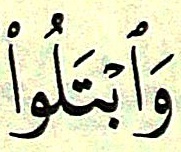 وَٱبۡتَلُواْ